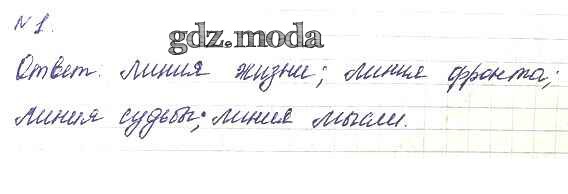 № 1.
gdz.moda
Ответ: линия жизни; линия фронта;
линия судьбы; линия мысли.